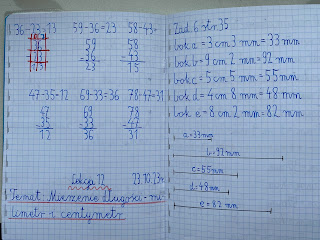 59-36=23
58-43=
59
-36
23
58
-43
15
47-35=12 69-33=36 78-47=31
47
-35
12
69
-33
36
78
-47
31
Lekcja 12 23.10.23r.
Temat: Mierzenie długości - mi-
limetr i centymetr
Zad. 6 str. 35
bok a = 3 cm 3 mm = 33 mm
bok b = 9 cm 2 mm = 92 mm
bok c = 5 cm 5 mm = 55 mm
bok d = 4 cm 8 mm = 48 mm
bok e = 8 cm 2 mm = 82 mm
a = 33mm
b = 92 mm
c = 55 mm
d = 48 mm
e = 82 mm